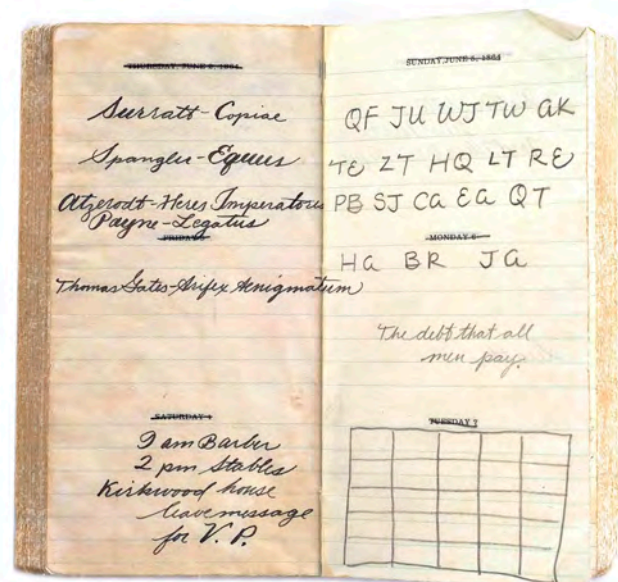 THURSDAY, JUNE 2, 1864.
Surratt-Copiae
Spangler-Equus
Atzerodt-Heres Imperatoris
Payne-Legatus
FRIDAY 3
Thomas Gates-Arifex Aenigmatum
SATURDAY 4
9 am Barber
2 pm Stables
Kirkwood house
leave message
for V.P.
SUNDAY, JUNE 5, 1864
QF JU WJ TW QK
TE ZT HQ LT RE
PB ST CQ EQ QT
MONDAY 6
HQ BR JQ
The debt that all
men pay.
TUESDAY 7